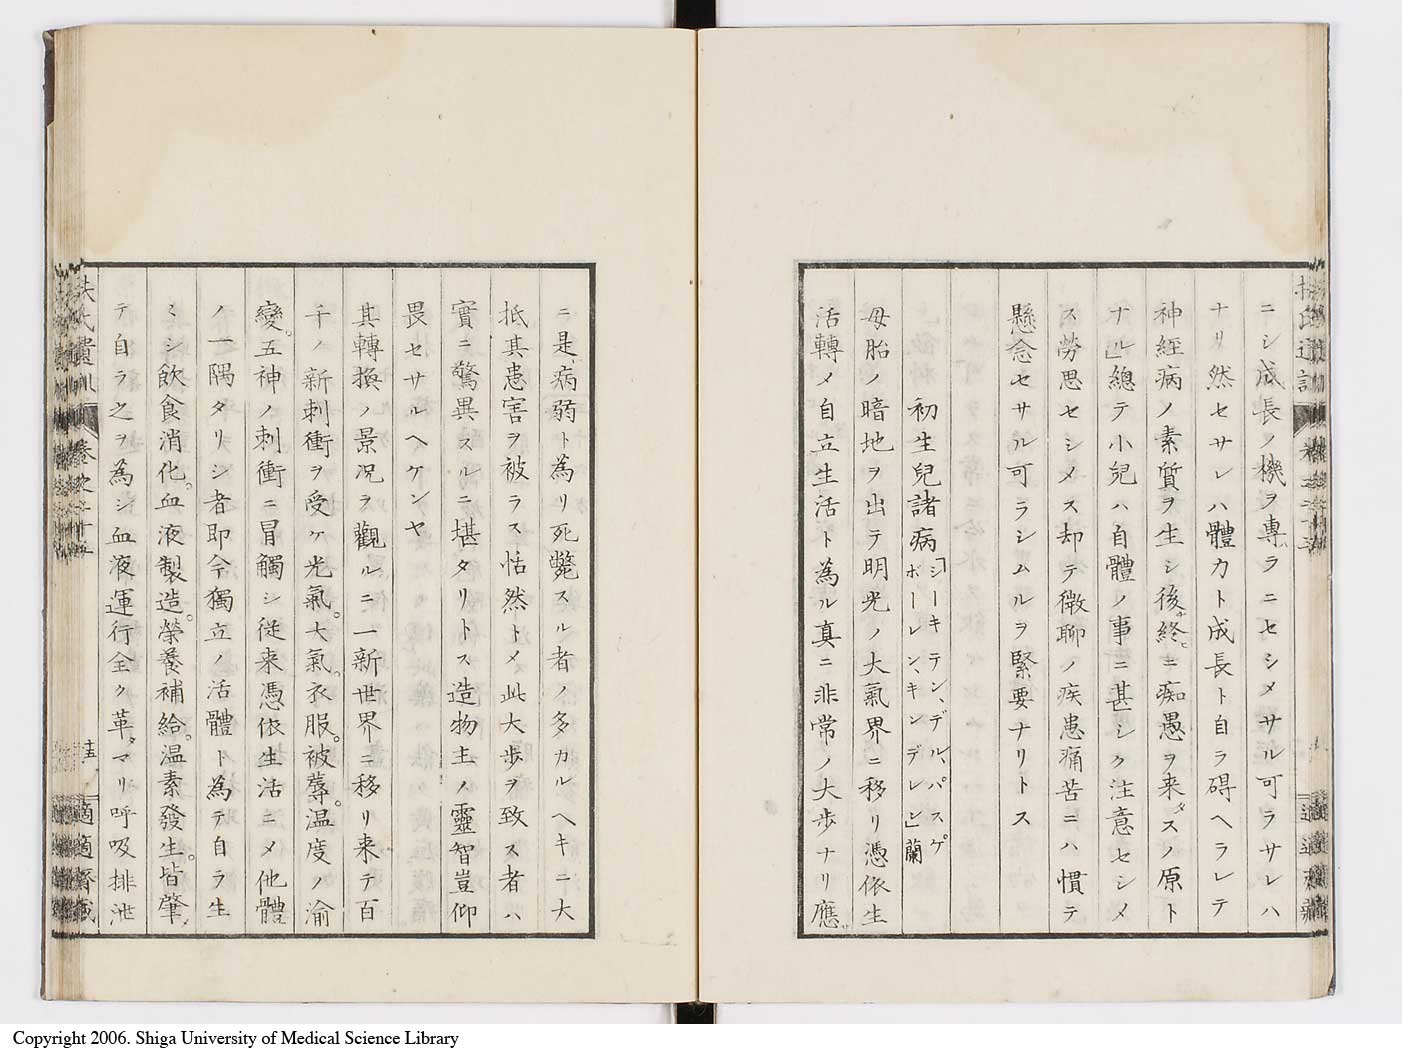 ニシ成長ノ機ヲ專ラニセシメサル可ラサレハ
ナリ然セサレハ體力ト成長ト自ラ碍ヘラレテ
神経病ノ素質ヲ生シ後終ニ痴愚ヲ来スノ原ト
ナル」總テ小兒ハ自體ノ事ニ甚シク注意セシメ
ス勞思セシメス却テ微聊ノ疾患痛苦ニハ慣テ
懸念セサル可ラシムルヲ緊要ナリトス
初生兒諸病「シーキテン、デル、パスゲボーレン、キンデレン」蘭
母胎ノ暗地ヲ出テ明光ノ大氣界ニ移リ憑依生
活轉メ自立生活ト為ル真ニ非常ノ大歩ナリ應
ニ是病弱ト為リ死斃スル者ノ多カルヘキニ大
抵其患害ヲ被ラス恬然トメ此大歩ヲ致ス者ハ
實ニ驚異スルニ堪タリトス造物主ノ靈智豈仰
畏セサルヘケンヤ
其轉換ノ景况ヲ觀ルニ一新世界ニ移リ来テ百
千ノ新刺衝ヲ受ケ光氣。大氣。衣服。被蓐。温度ノ渝
變。五神ノ刺衝ニ冒觸シ従来憑依生活ニメ他體
ノ一隅タリシ者即今獨立ノ活體ト為テ自ラ生
ミシ飲食消化。血液製造。榮養補給。温素發生。皆肇
テ自ラ之ヲ為シ血液運行全ク革マリ呼吸排泄
扶氏遺訓
卷之二十五
十五
適適齋藏
Copyright 2006. Shiga University of Medical Science Library